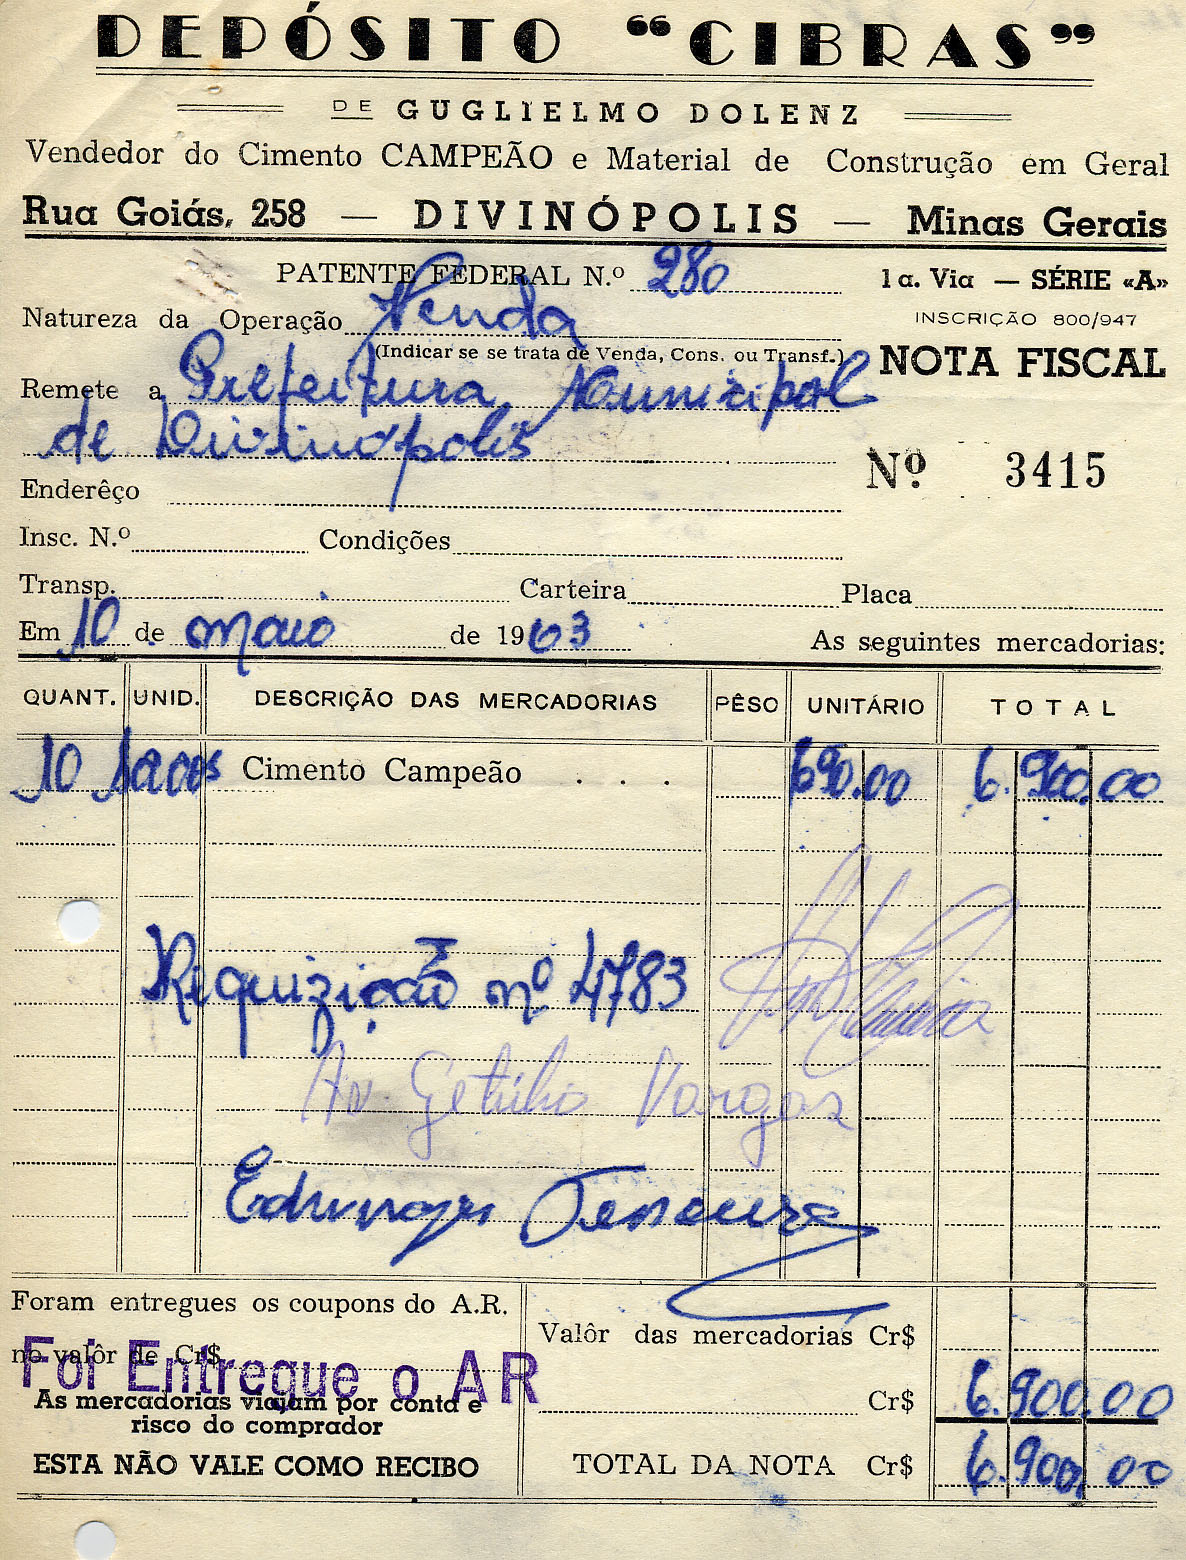 DEPÓSITO “CIBRAS”
DE GUGLIELMO DOLENZ
Vendedor do Cimento CAMPEÃO e Material de Construção em Geral
Rua Goiás, 258 — DIVINÓPOLIS — Minas Gerais
PATENTE FEDERAL N.º 280
1a. Via — SÉRIE «A»
Natureza da Operação Venda
INSCRIÇÃO 800/947
(Indicar se se trata de Venda, Cons. ou Transf.)
NOTA FISCAL
Remete a Prefeitura Municipal
de Divinópolis
Nº 3415
Enderêço
Insc. N.º Condições
Transp. Carteira Placa
Em 10 de maio de 1963 As seguintes mercadorias:
QUANT. UNID. DESCRIÇÃO DAS MERCADORIAS PÊSO UNITÁRIO TOTAL
10 Sacos Cimento Campeão . . . 690.00 6.900.00
Riquizição nº 4783
Av. Getúlio Vargas
Foram entregues os coupons do A.R.
no valôr de Cr$
Foi Entregue o AR
As mercadorias viajam por conta e
risco do comprador
ESTA NÃO VALE COMO RECIBO
Valôr das mercadorias Cr$
Cr$ 6.900.00
TOTAL DA NOTA Cr$ 6.900.00